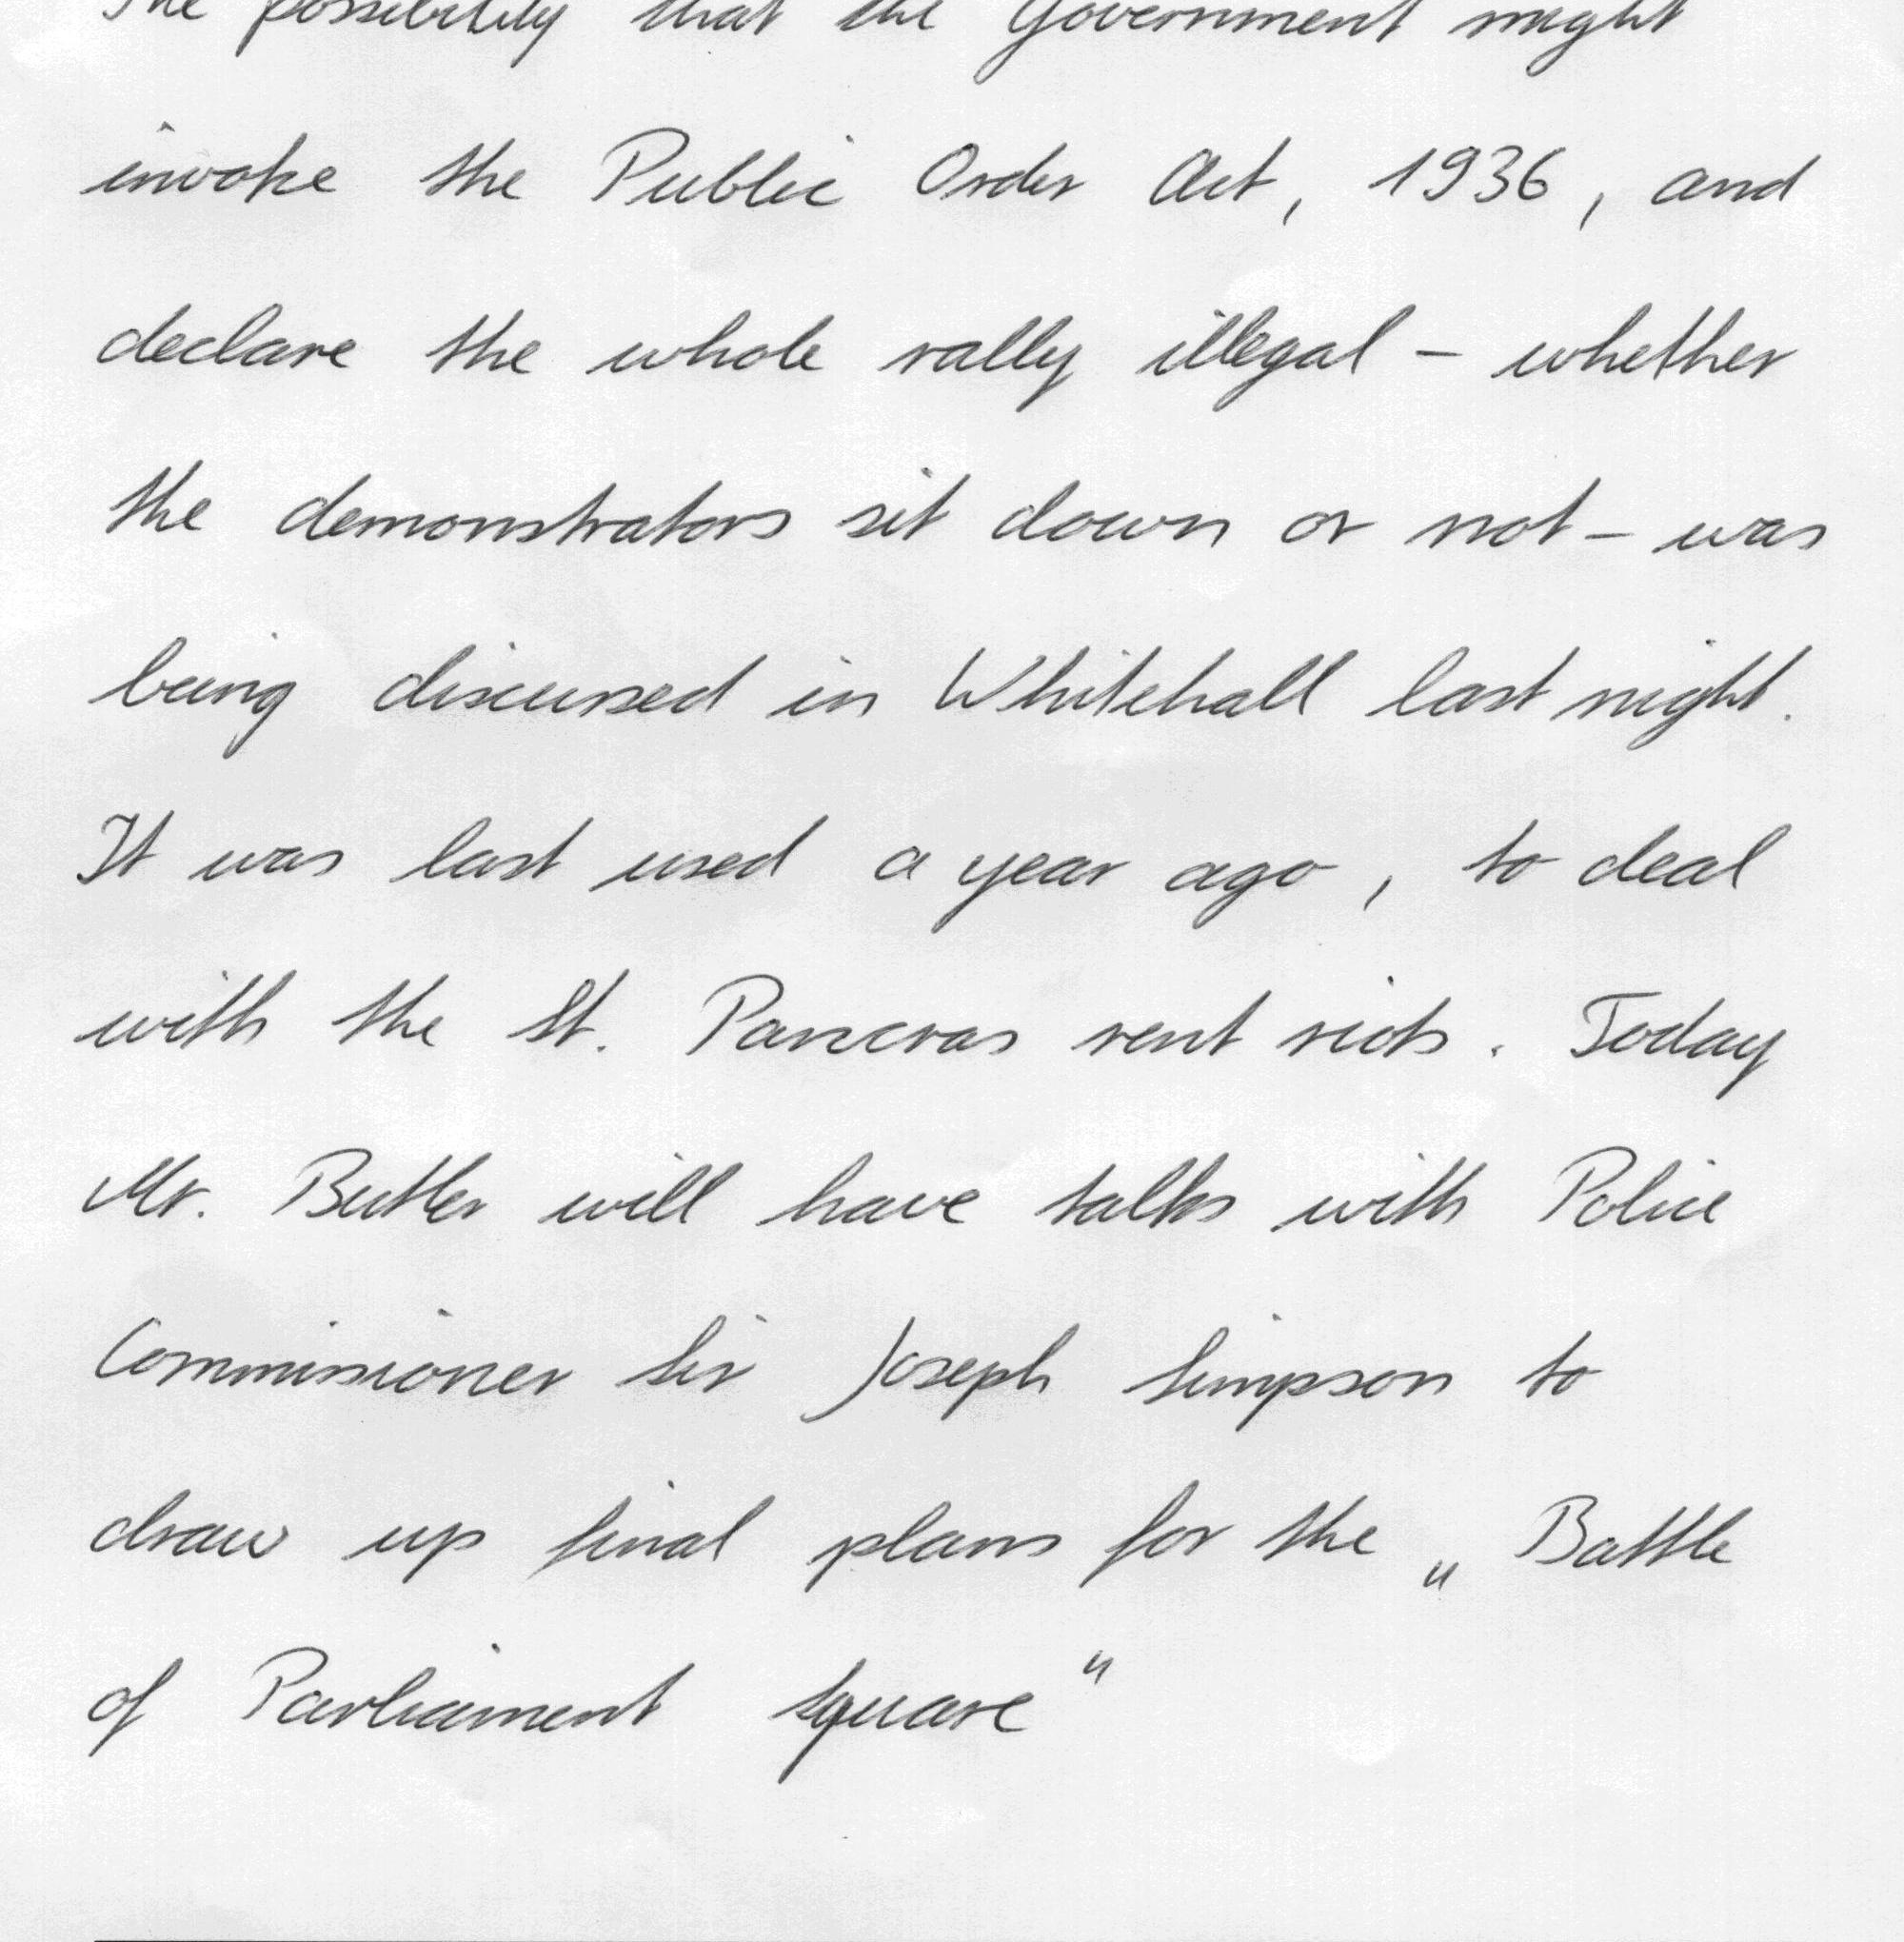 The possibility that the Government might
invoke the Public Order Act, 1936, and
declare the whole rally illegal – whether
the demonstrators sit down or not – was
being discussed in Whitehall last night.
It was last used a year ago, to deal
with the St. Pancras rent riots. Today
Mr. Butler will have talks with Police
Commissioner Sir Joseph Simpson to
draw up final plans for the „Battle
of Parliament Square“